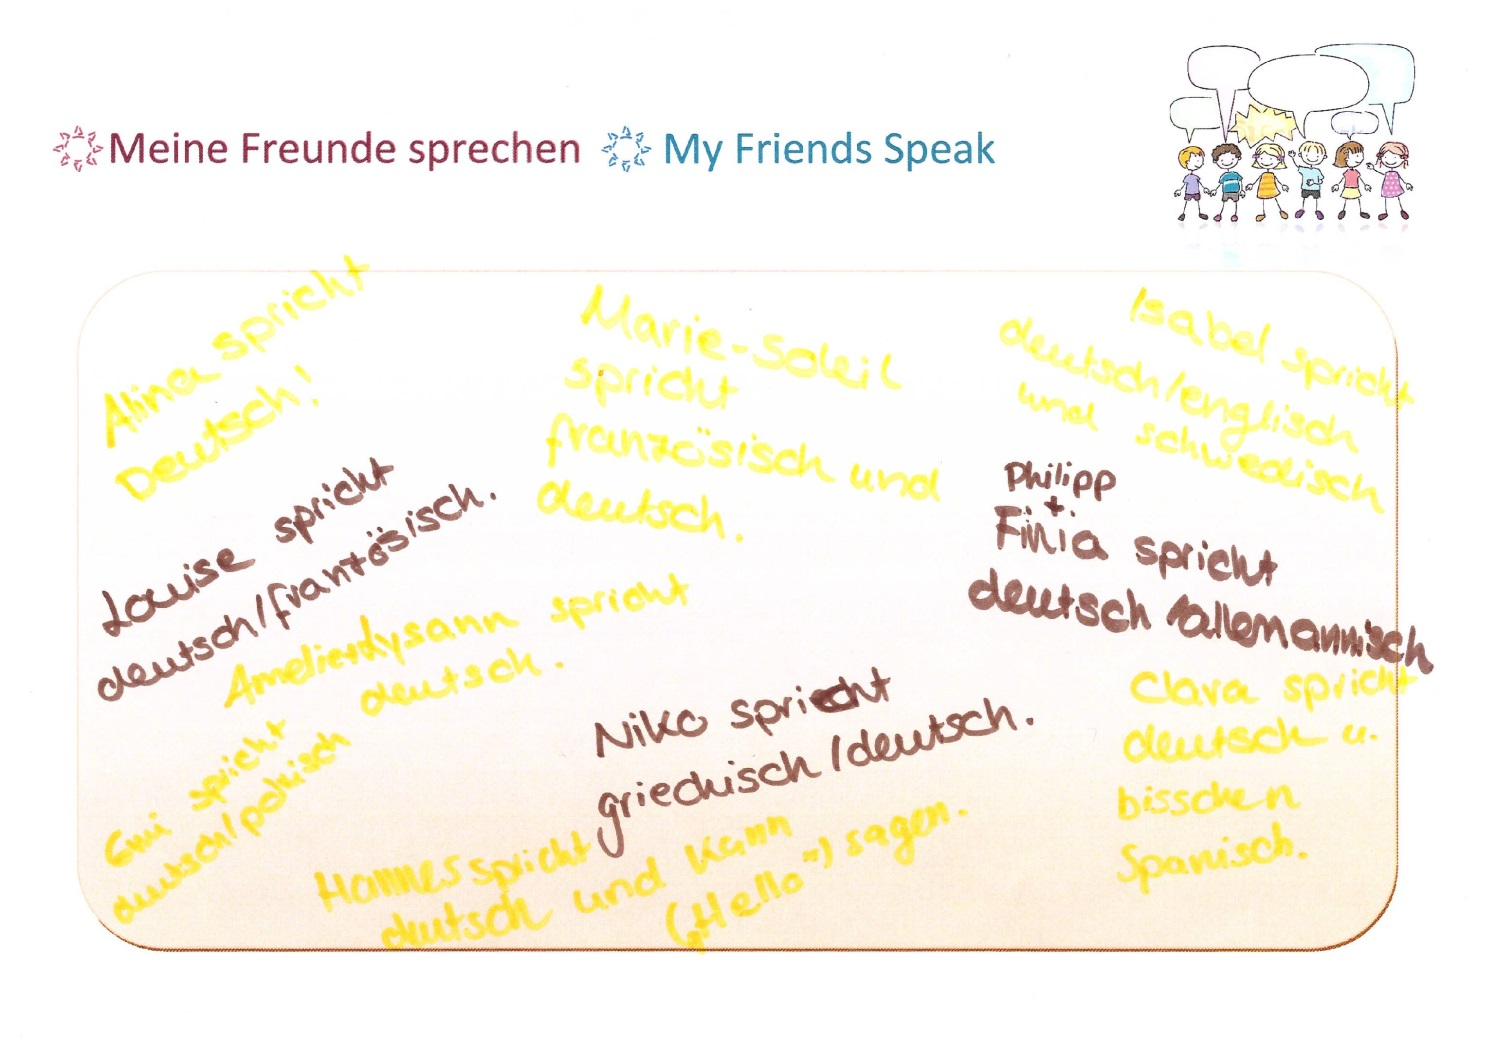 Meine Freunde sprechen My Friends Speak
Alina spricht
Deutsch!
Marie-Soleil
spricht
französisch und
deutsch.
Isabel spricht
deutsch/englisch
und schwedisch
Louise spricht
deutsch/französisch.
Philipp
+
Finia spricht
deutsch /allemannisch
Amelie+Lysann spricht
deutsch.
Niko spricht
griechisch/deutsch.
Clara spricht
deutsch u.
bisschen
Spanisch.
Emi spricht
deutsch/polnisch
Hannes spricht
deutsch und kann
("Hello") sagen.